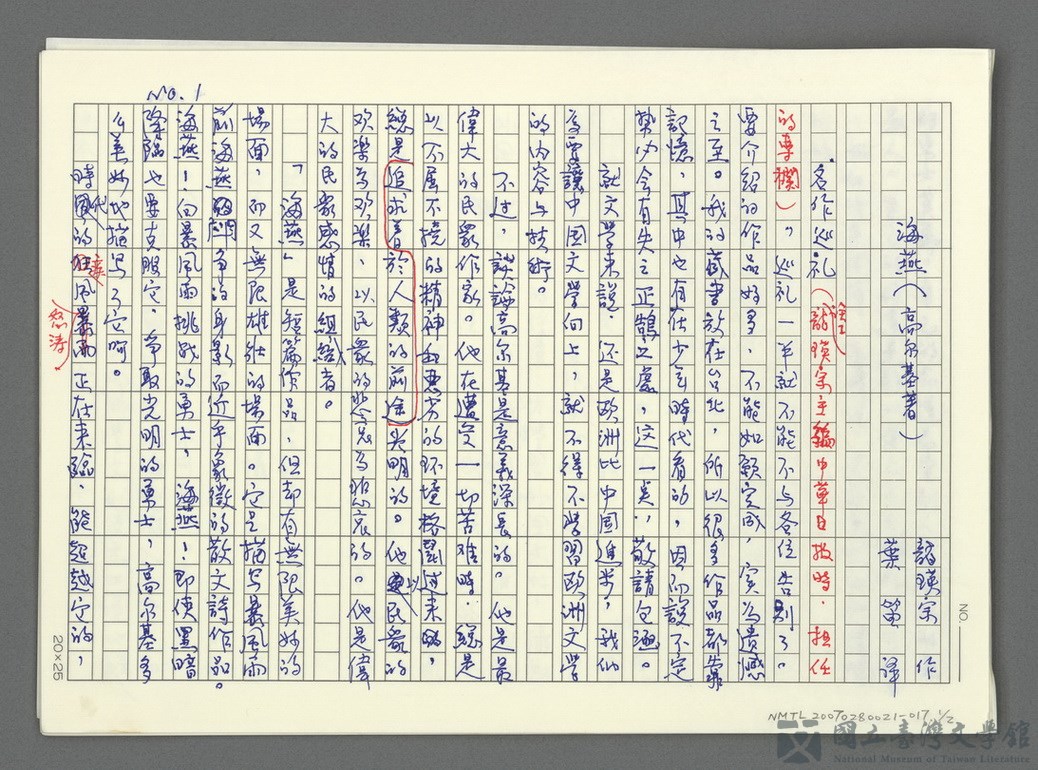 NO. 1
海燕(高尔基著)
龍瑛宗 作
葉笛 譯
名作巡礼(註 龍瑛宗主編中華日报時,担任
的專欄)。巡礼一羊就不能不与各位告别了。
要介紹的作品好多,不能如願完成,実為遺憾
之至。我的藏書放在台北,所以很多作品都靠
記憶,其中也有在少年時代看的,因而說不定
势必会有失之正鵠之處,这一奌,敬請包涵。
就文学来說,还是欧洲比中国進步,我们
為要讓中国文学向上,就不得不学習欧洲文学
的内容与技術。
不过,談論高尔基是意義深長的。他是最
偉大的民衆作家。他在遭受一切苦难時,總是
以不屈不撓的精神和悪劣的环境格鬪过来,
總是追求着於人類的前途光明的。他以民衆的
欢樂為欢樂,以民衆的悲哀為悲哀的。他是偉
大的民衆感情的組織者。
「海燕」是短篇作品,但却有無限美妙的
場面,而又無限雄壯的場面。它是描写暴風雨
前海燕鬪争的身影而近乎象徵的散文詩作品。
海燕!向暴風雨挑战的勇士,海燕!即使黑暗
降臨也要克服它,争取光明的勇士,高尔基多
么美妙地描写了它呵。
時代的狂風怒涛正在来臨,能超越它的,
NO.
20×25
NMTL 20070280021-017 1/2
國立臺灣文學館
National Museum of Taiwan Literature